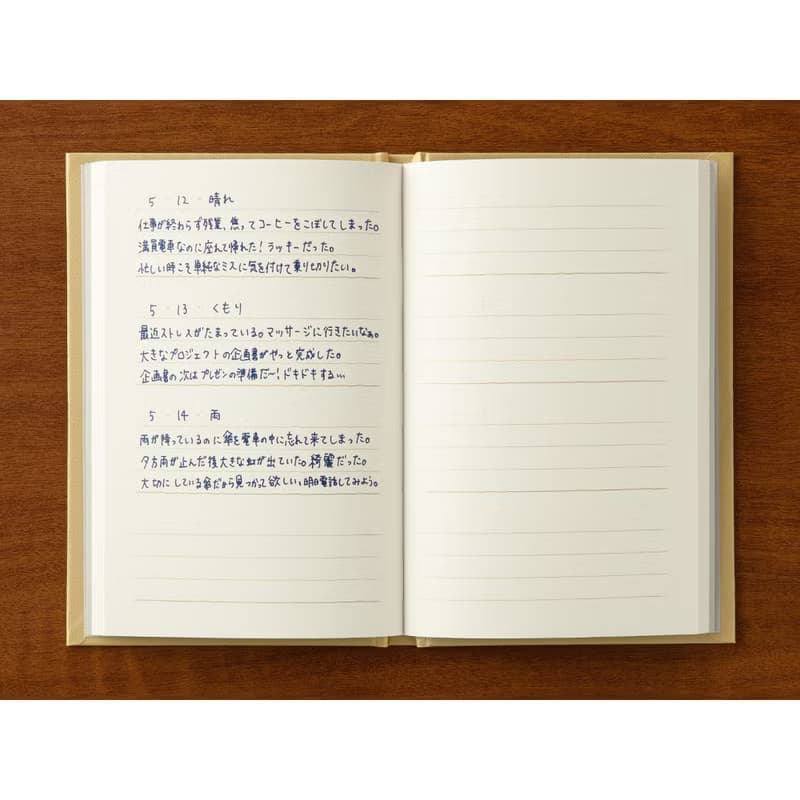 5 12 晴れ
仕事が終わらず残業、焦ってコーヒーをこぼしてしまった。
満員電車なのに座れて帰れた！ラッキーだった。
忙しい時こそ単純なミスに気を付けて乗り切りたい。
5 13 くもり
最近ストレスがたまっている。マッサージに行きたいなぁ。
大きなプロジェクトの企画書がやっと完成した。
企画書の次はプレゼンの準備だ〜！ドキドキする…
5 14 雨
雨が降っているのに傘を電車の中に忘れて来てしまった。
夕方雨が止んだ後大きな虹が出ていた。綺麗だった。
大切にしている傘だから見つかって欲しい、明日電話してみよう。